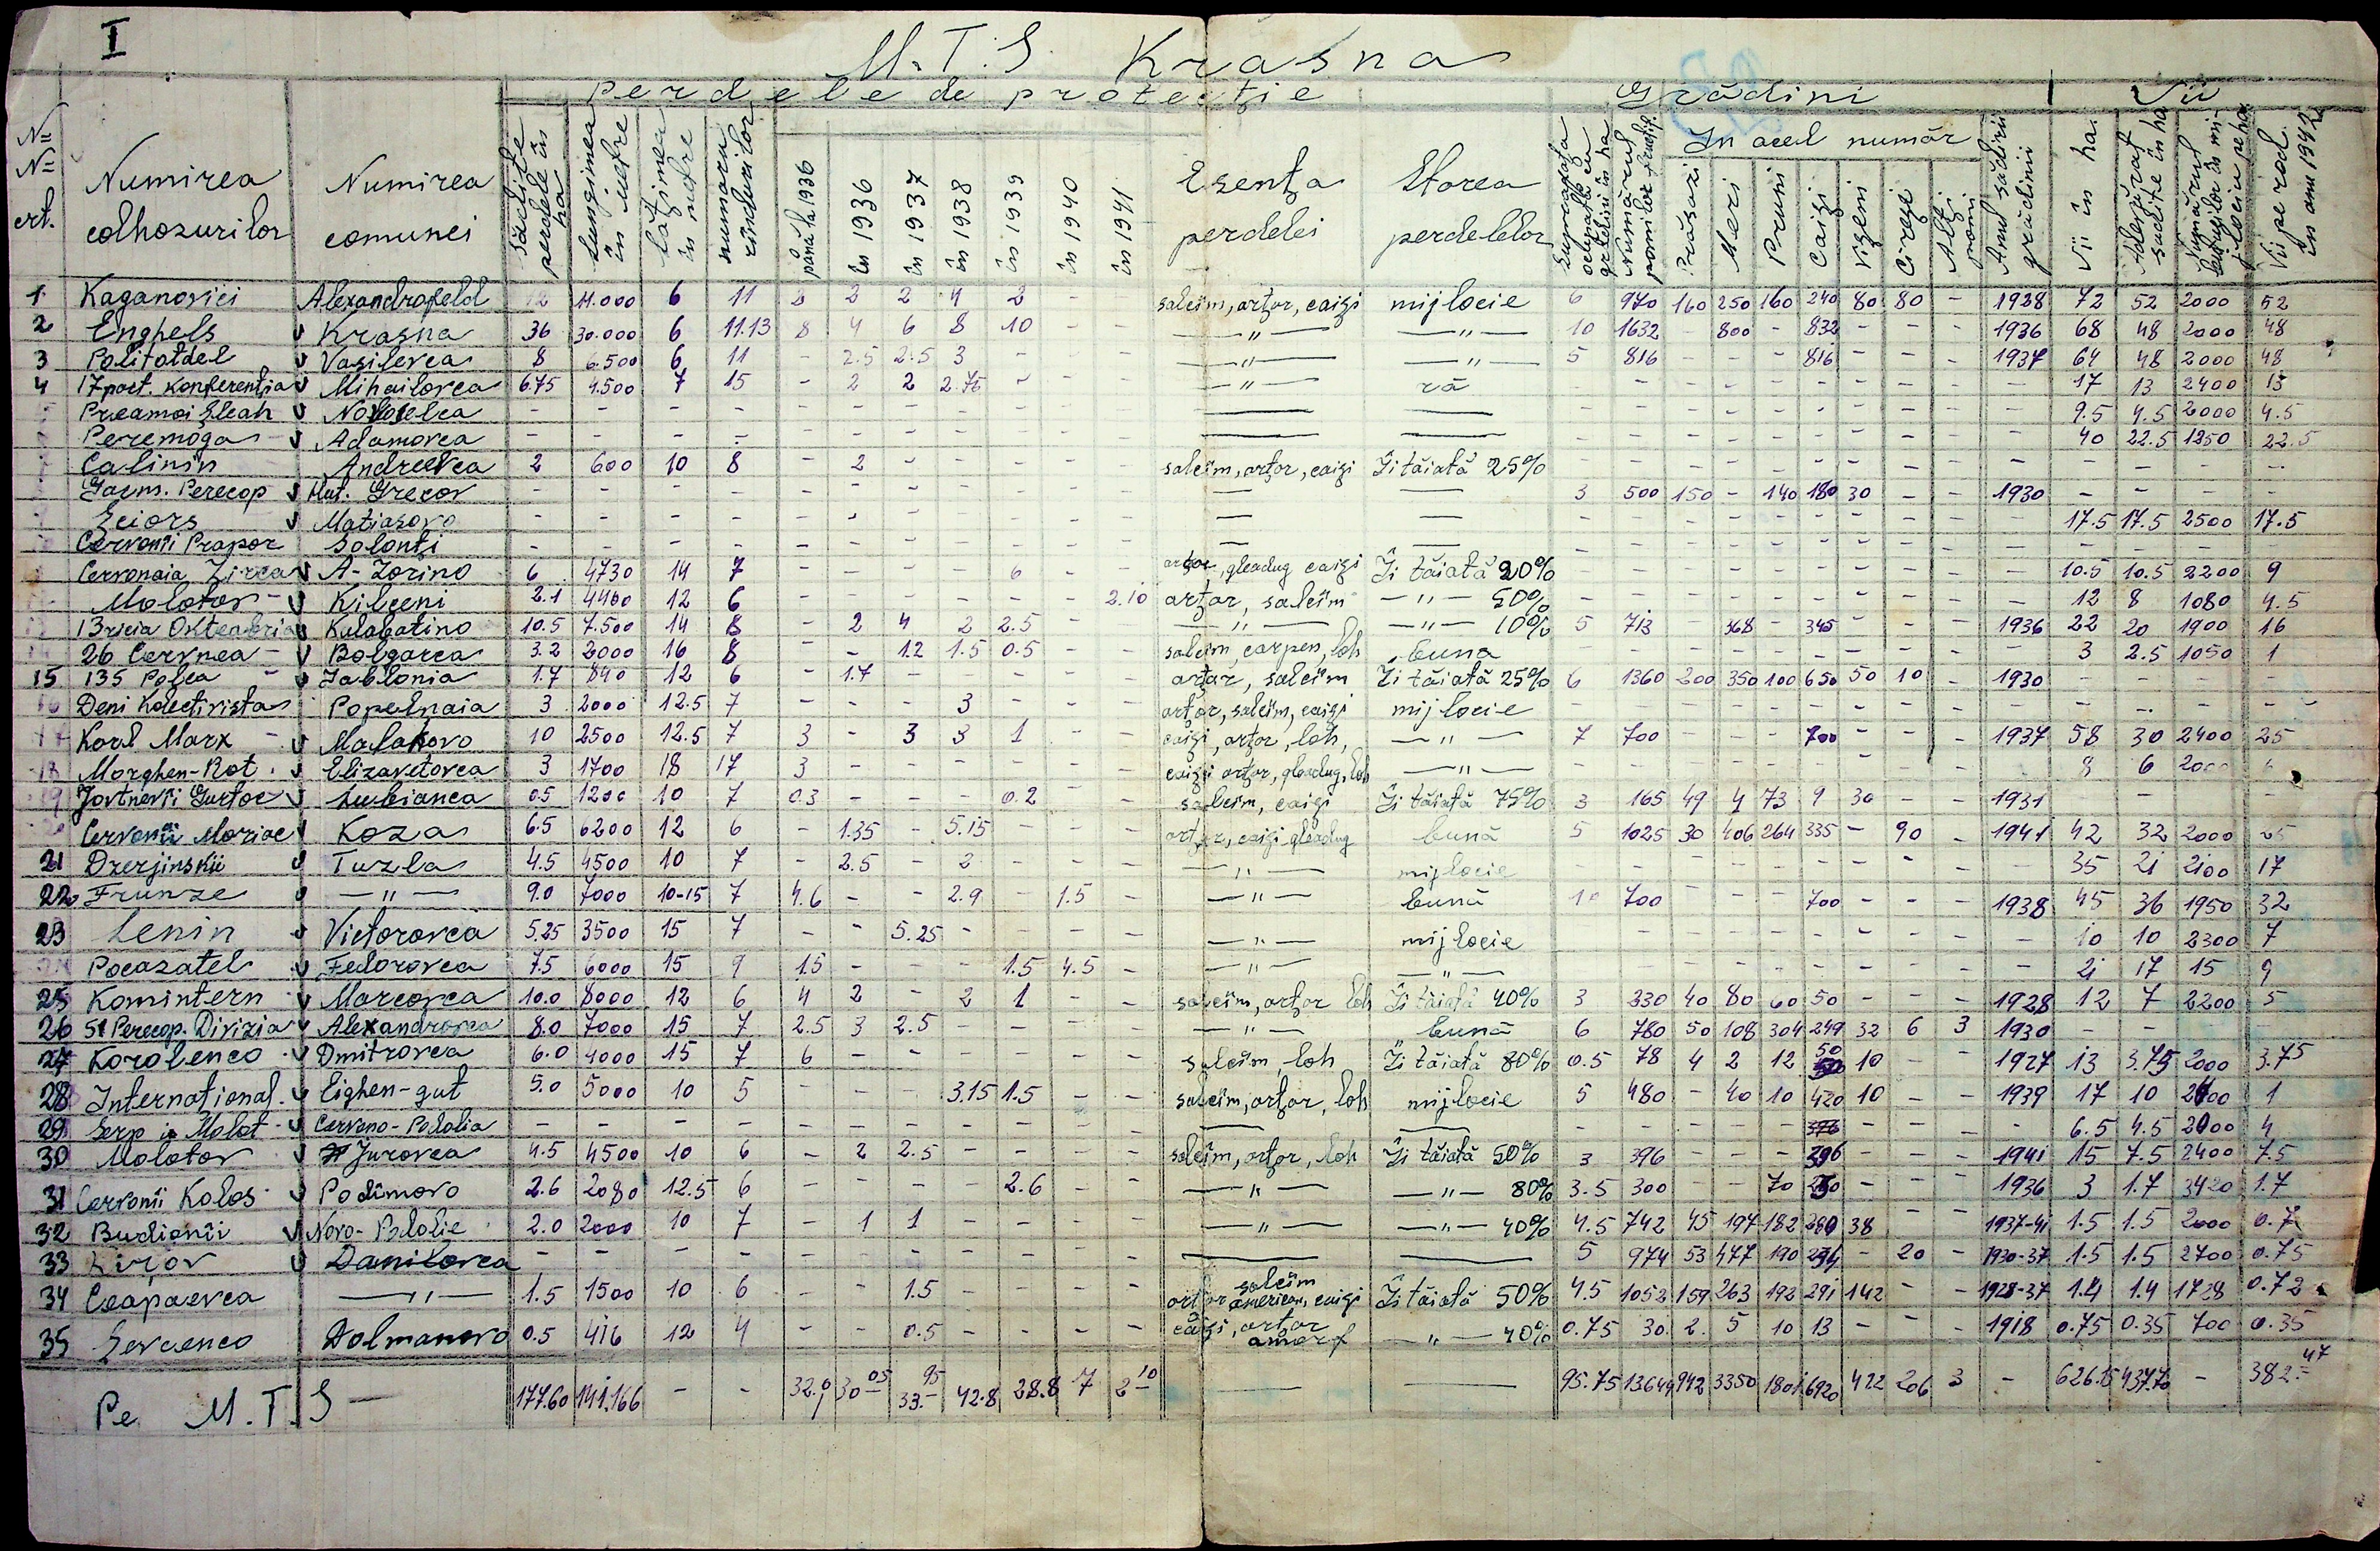 I
M.T.S Krasna
Perdele de protecţie Grădini Vii
№ № crt. Numirea colhozurilor Numirea comunei Sădite perdele în ha Lungimea în metre Lăţimea în metre numaru rîndurilor până la 1936 în 1936 în 1937 în 1938 în 1939 în 1940 în 1941 Esenţa perdelei Starea perdelelor Suprafaţa ocupată cu grădini în ha Numărul pomilor fructif. In acel număr Prăsazi Meri Pruni Caişi Vişini Cireşi Alţi pomi Anul sădirii grădinii Vii în ha. Adevărat sădite în ha Numărul buţilor în mijlociu pe ha Vii pe rod. în anu 1942
1 Kaganovici Alexandrofeld 12 11.000 6 11 2 2 2 4 2 - salcîm, arţar, caişi mijlocie 6 970 160 250 160 240 80 80 - 1938 72 52 2000 52
2 Enghels v Krasna 36 30.000 6 11.13 8 4 6 8 10 - - —"— —"— 10 1632 - 800 - 832 - - - 1936 68 48 2000 48
3 Politotdel v Vasilevca 8 6.500 6 11 - 2.5 2.5 3 - - - —"— —"— 5 816 - - - 816 - - - 1937 64 48 2000 48
4 17 part. Konferenţia v Mihailovca 6.75 4.500 7 15 - 2 2 2.75 - - - —"— ră - - - - - - - - - - 17 13 2400 13
Preamoi Şleah v Novoselca - - - - - - - - - - - — — - - - - - - - - - - 9.5 4.5 2000 4.5
Peremoga v Adamovca - - - - - - - - - - - — — - - - - - - - - - - 40 22.5 1250 22.5
Calinin Andreevca 2 600 10 8 - 2 - - - - - salcîm, arţar, caişi Îi tăiată 25% - - - - - - - - - - - - - -
Iacm. Perecop v Hut. Grecov - - - - - - - - - - - — — 3 500 150 - 140 180 30 - - 1930 - - - -
Şciors v Matiasovo - - - - - - - - - - - — — - - - - - - - - - - 17.5 17.5 2500 17.5
Cervonîi Prapor Solonţi - - - - - - - - - - - — — - - - - - - - - - - - - - -
Cervonaia Zirca v A-Zorino 6 4730 14 7 - - - - 6 - - arţar, gleadug caişi Îi tăiată 20% - - - - - - - - - - 10.5 10.5 2200 9
Molotov v Kilceni 2.1 4400 12 6 - - - - - - 2.10 arţar, salcîm —"— 50% - - - - - - - - - - 12 8 1080 4.5
13ricia Okteabria v Kalabatino 10.5 7.500 14 8 - 2 4 2 2.5 - - —"— —"— 10% 5 713 - 368 - 345 - - - 1936 22 20 1900 16
14 26 Cervnea v Bolgarca 3.2 2000 16 8 - - 1.2 1.5 0.5 - - salcîm, carpen, loh bună - - - - - - - - - - 3 2.5 1050 1
15 135 Polca v Iablonia 1.7 840 12 6 - 1.7 - - - - - arţar, salcîm Îi tăiată 25% 6 1360 200 350 100 650 50 10 - 1930 - - - -
16 Deni Kolectivista Popelnaia 3 2000 12.5 7 - - - 3 - - - arţar, salcîm, caişi mijlocie - - - - - - - - - - - - - -
Karl Marx v Malakovo 10 2500 12.5 7 3 - 3 3 1 - - caişi, arţar, loh, —"— 7 700 - - - 700 - - - 1937 58 30 2400 25
18 Morghen-Rot v Elizavetovca 3 1700 18 17 3 - - - - - - caişi arţar, gleadug, loh —"— - - - - - - - - - - 8 6 2000
19 Jovtnevîi Gurtoc v Lubianca 0.5 1200 10 7 0.3 - - - 0.2 - - salcîm, caişi Îi tăiată 75% 3 165 49 4 73 9 30 - - 1931 - - -
Cervonîi Moriac v Koza 6.5 6200 12 6 - 1.35 - 5.15 - - - arţar, caişi gleadug bună 5 1025 30 406 264 335 - 90 - 1941 42 32 2000 25
21 Dzerjinskii v Tuzla 4.5 4500 10 7 - 2.5 - 2 - - - —"— mijlocie - - - - - - - - - - 35 21 2100 17
22 Frunze v —"— 9.0 7000 10-15 7 4.6 - - 2.9 - 1.5 - —"— bună 10 700 - - - 700 - - - 1938 45 36 1950 32
23 Lenin v Victorovca 5.25 3500 15 7 - - 5.25 - - - - —"— mijlocie - - - - - - - - - - 10 10 2300 7
Pocazatel v Fedorovca 7.5 6000 15 9 1.5 - - - 1.5 4.5 - —"— —"— - - - - - - - - - - 21 17 15 9
25 Komintern v Marcovca 10.0 8000 12 6 4 2 - 2 1 - - salcîm, arţar loh Îi tăiată 40% 3 230 40 80 60 50 - - - 1928 12 7 2200 5
26 51 Perecop. Divizia v Alexandrovca 8.0 7000 15 7 2.5 3 2.5 - - - - —"— bună 6 780 50 108 304 249 32 6 3 1930 - - - -
27 Korolenco v Dmitrovca 6.0 4000 15 7 6 - - - - - - salcîm, loh Îi tăiată 80% 0.5 78 4 2 12 50 10 - - 1927 13 3.75 2000 3.75
28 International. v Lighen-gut 5.0 5000 10 5 - - - 3.15 1.5 - - salcîm, arţar, loh mijlocie 5 480 - 40 10 420 10 - - 1939 17 10 2400 1
29 Serp i Molot v Cervono-Podolia - - - - - - - - - - - — — - - - - - - - - - 6.5 4.5 2000 4
30 Molotov v Jurovca 4.5 4500 10 6 - 2 2.5 - - - - salcîm, arţar, loh Îi tăiată 50% 3 396 - - - 396 - - - 1941 15 7.5 2400 7.5
31 Cervonîi Kolos v Podîmovo 2.6 2080 12.5 6 - - - - 2.6 - - —"— —"— 80% 3.5 300 - - 70 230 - - - 1936 3 1.7 3420 1.7
32 Budionîi v Novo-Podolie 2.0 2000 10 7 - 1 1 - - - - —"— —"— 40% 4.5 742 45 197 182 280 38 - - 1937-41 1.5 1.5 2000 0.7
33 Kirov v Danilovca - - - - - - - - - - - — — 5 974 53 477 190 234 - 20 - 1930-37 1.5 1.5 2700 0.75
34 Ceapaevca —"— 1.5 1500 10 6 - - 1.5 - - - - salcîm arţar american, caişi Îi tăiată 50% 4.5 1052 159 263 192 291 142 - - 1928-37 1.4 1.4 1728 0.72
35 Sevcenco Dolmanovo 0.5 416 12 4 - - 0.5 - - - - caişi, arţar amorf —"— 40% 0.75 30 2 5 10 13 - - - 1918 0.75 0.35 700 0.35
Pe M.T.S — 177.60 141.166 - - 32.9 30 05 33. 95 42.8 28.8 7 2 10 — — 95.75 13649 942 3350 1801 6920 422 206 3 - 626.15 437.70 - 382.47